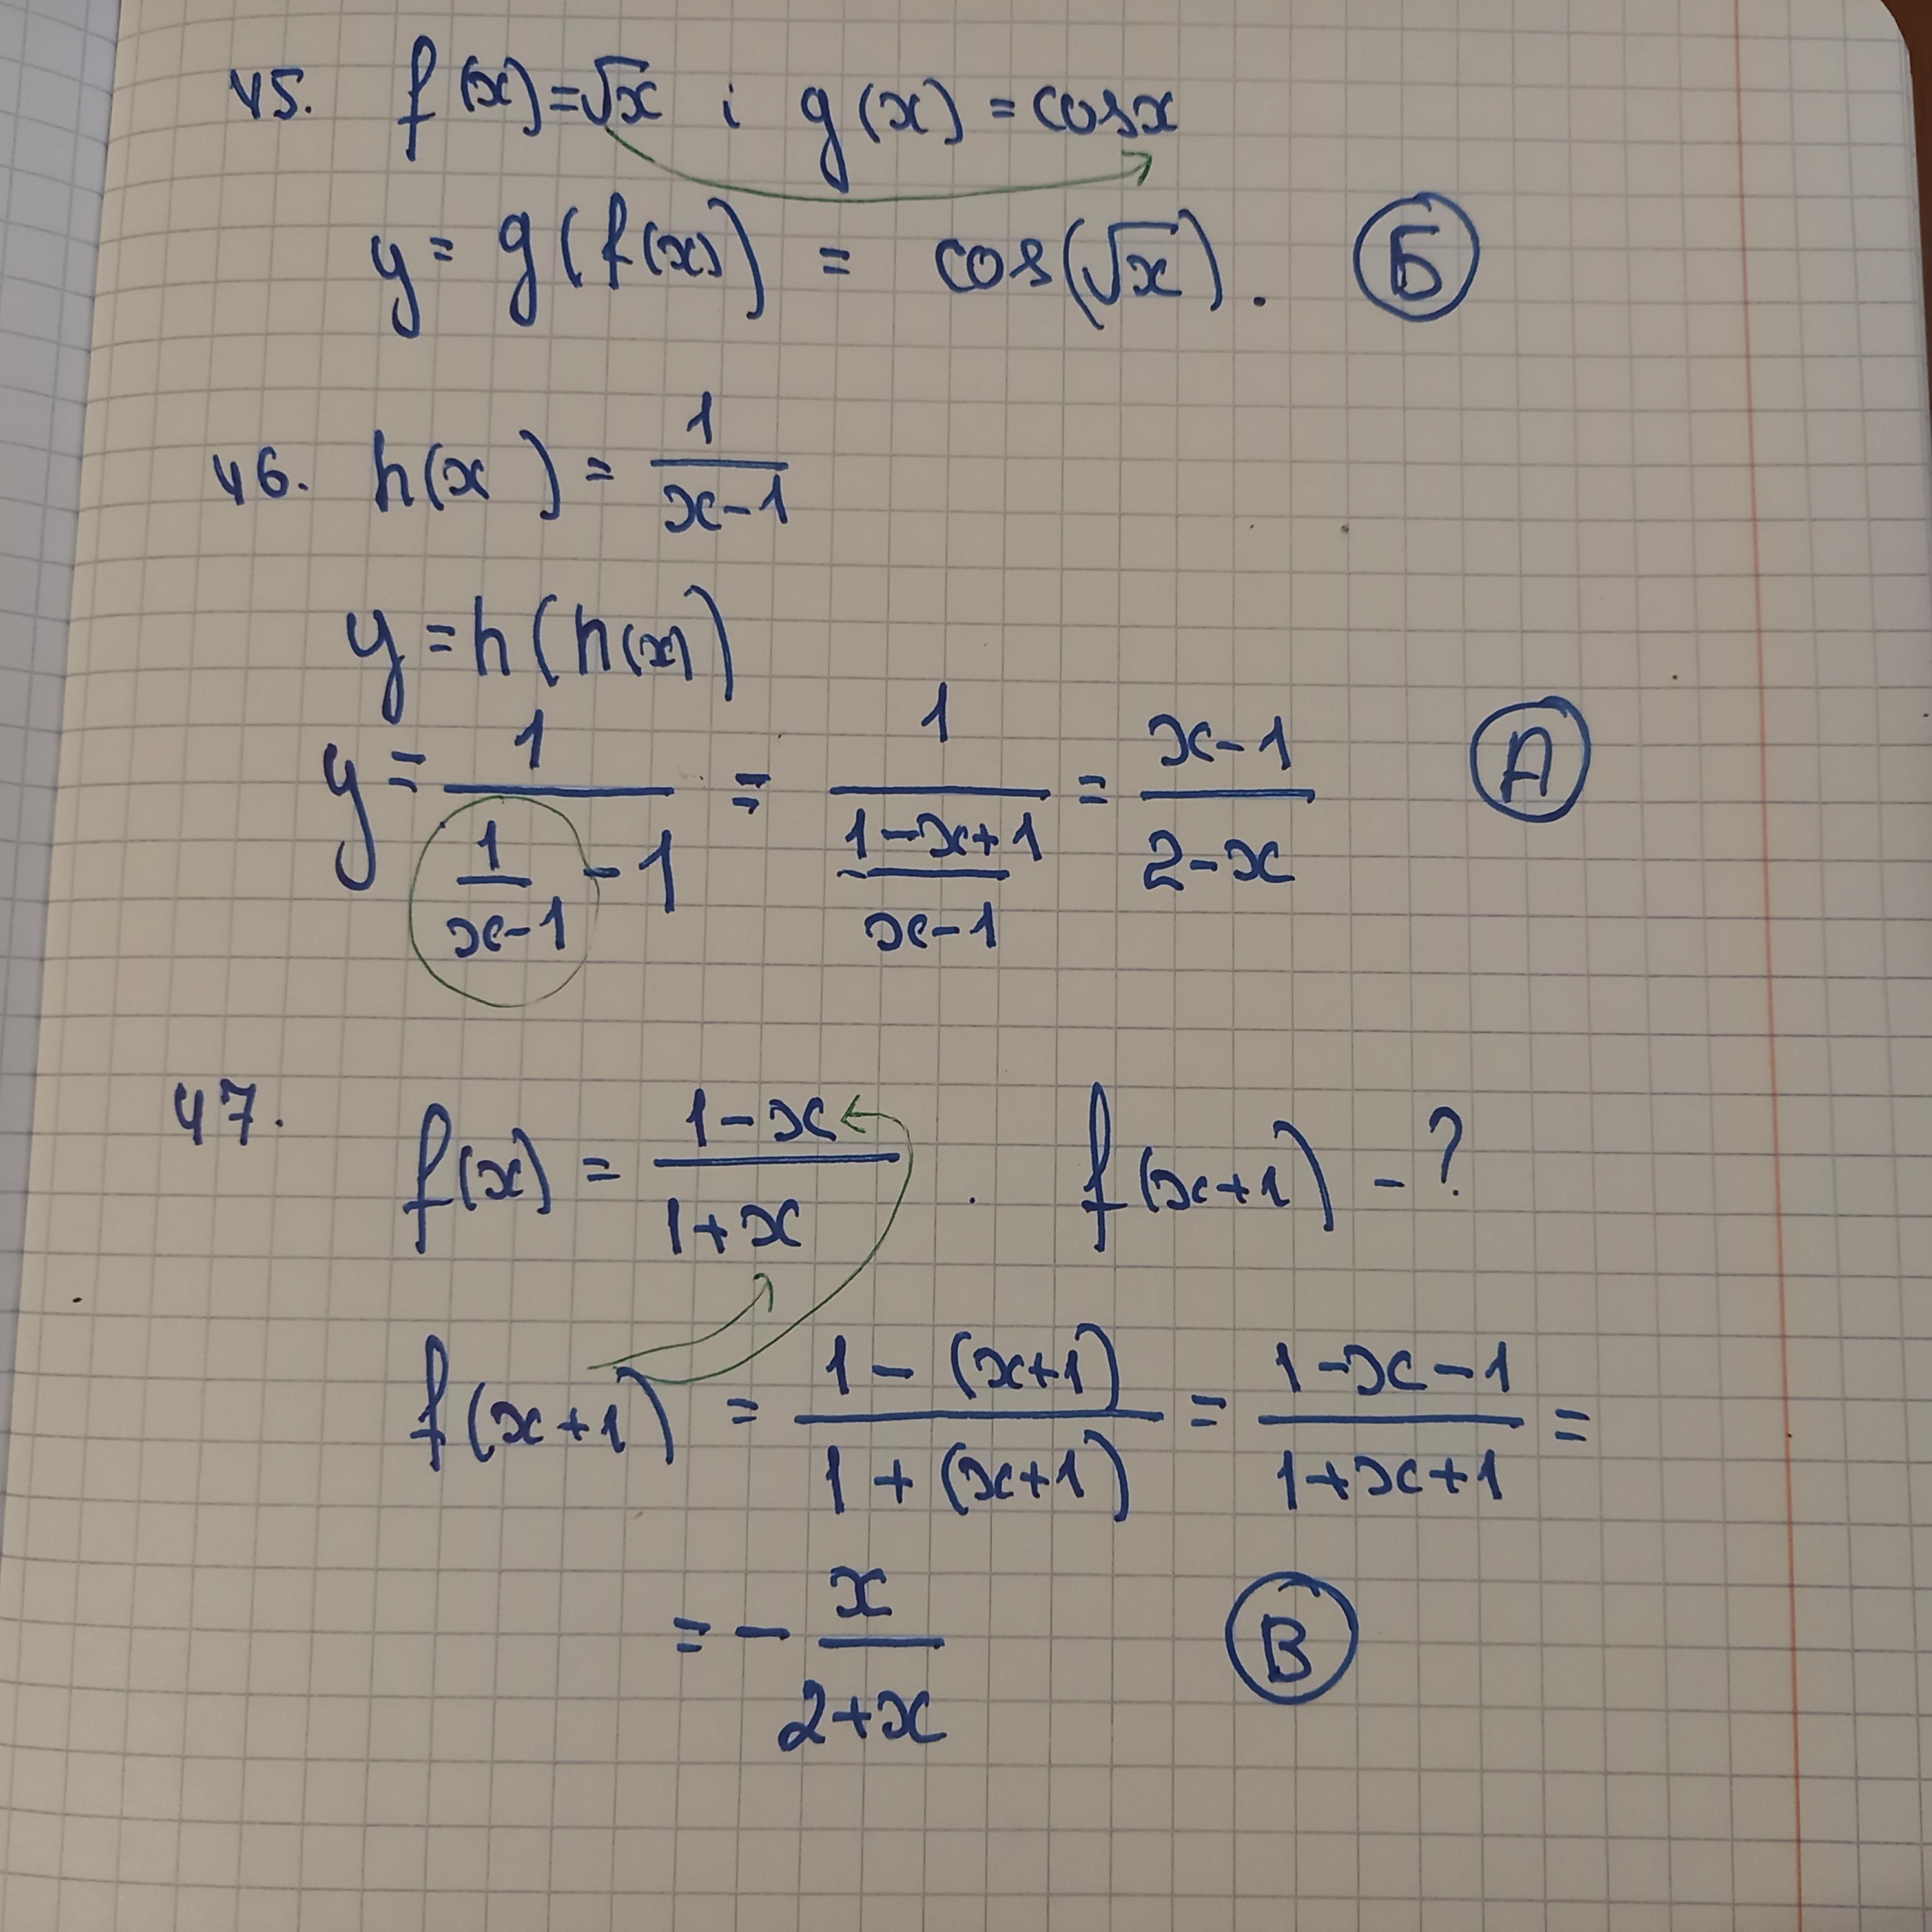 45. f(x)=√x i g(x)=cosx
y = g(f(x)) = cos(√x). Б
46. h(x) = 1/(x-1)
y = h(h(x)
y = 1/(1/(x-1) - 1) = 1/((1-x+1)/(x-1)) = (x-1)/(2-x) А
47. f(x) = (1-x)/(1+x) . f(x+1) - ?
f(x+1) = (1-(x+1))/(1+(x+1)) = (1-x-1)/(1+x+1) =
= - x/(2+x) В